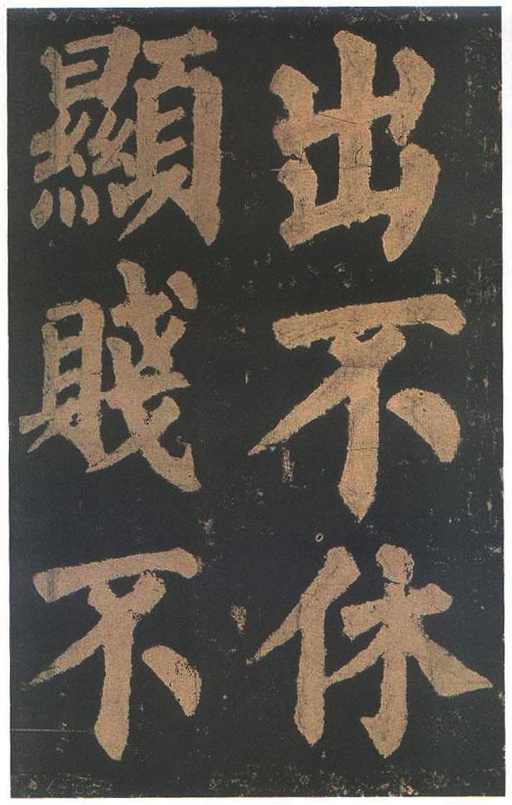 出不休
顯賤不